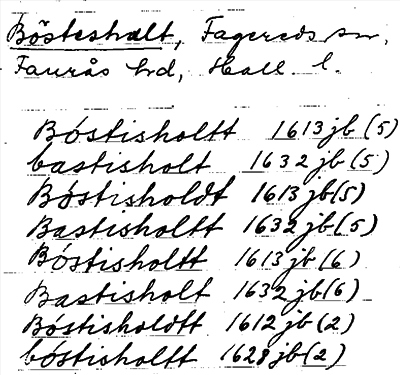 Bösteshalt, Fagereds sn,
Faurås hd, Hall. l.
Bóstisholtt 1613 jb (5)
bastisholt 1632 jb (5)
Bóstisholdt 1613 jb (5)
Bastisholtt 1632 jb (5)
Bóstisholtt 1613 jb (6)
Bastisholt 1632 jb (6)
Bóstisholdtt 1612 jb (2)
bóstisholtt 1628 jb (2)